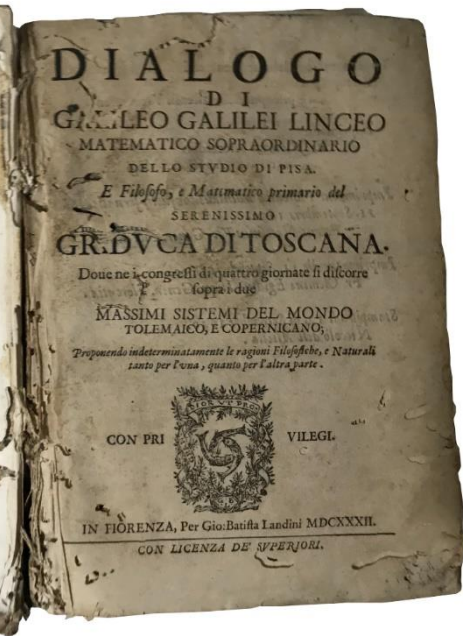 DIALOGO
DI
GALILEO GALILEI LINCEO
MATEMATICO SOPRAORDINARIO
DELLO STVDIO DI PISA.
E Filosofo, e Matematico primario del
SERENISSIMO
GR.DVCA DI TOSCANA.
Doue ne i congressi di quattro giornate si discorre
sopra i due
MASSIMI SISTEMI DEL MONDO
TOLEMAICO, E COPERNICANO;
Proponendo indeterminatamente le ragioni Filosofiche, e Naturali
tanto per l'vna, quanto per l'altra parte.
CON PRI VILEGI.
IN FIORENZA, Per Gio:Batista Landini MDCXXXII.
CON LICENZA DE' SVPERIORI.